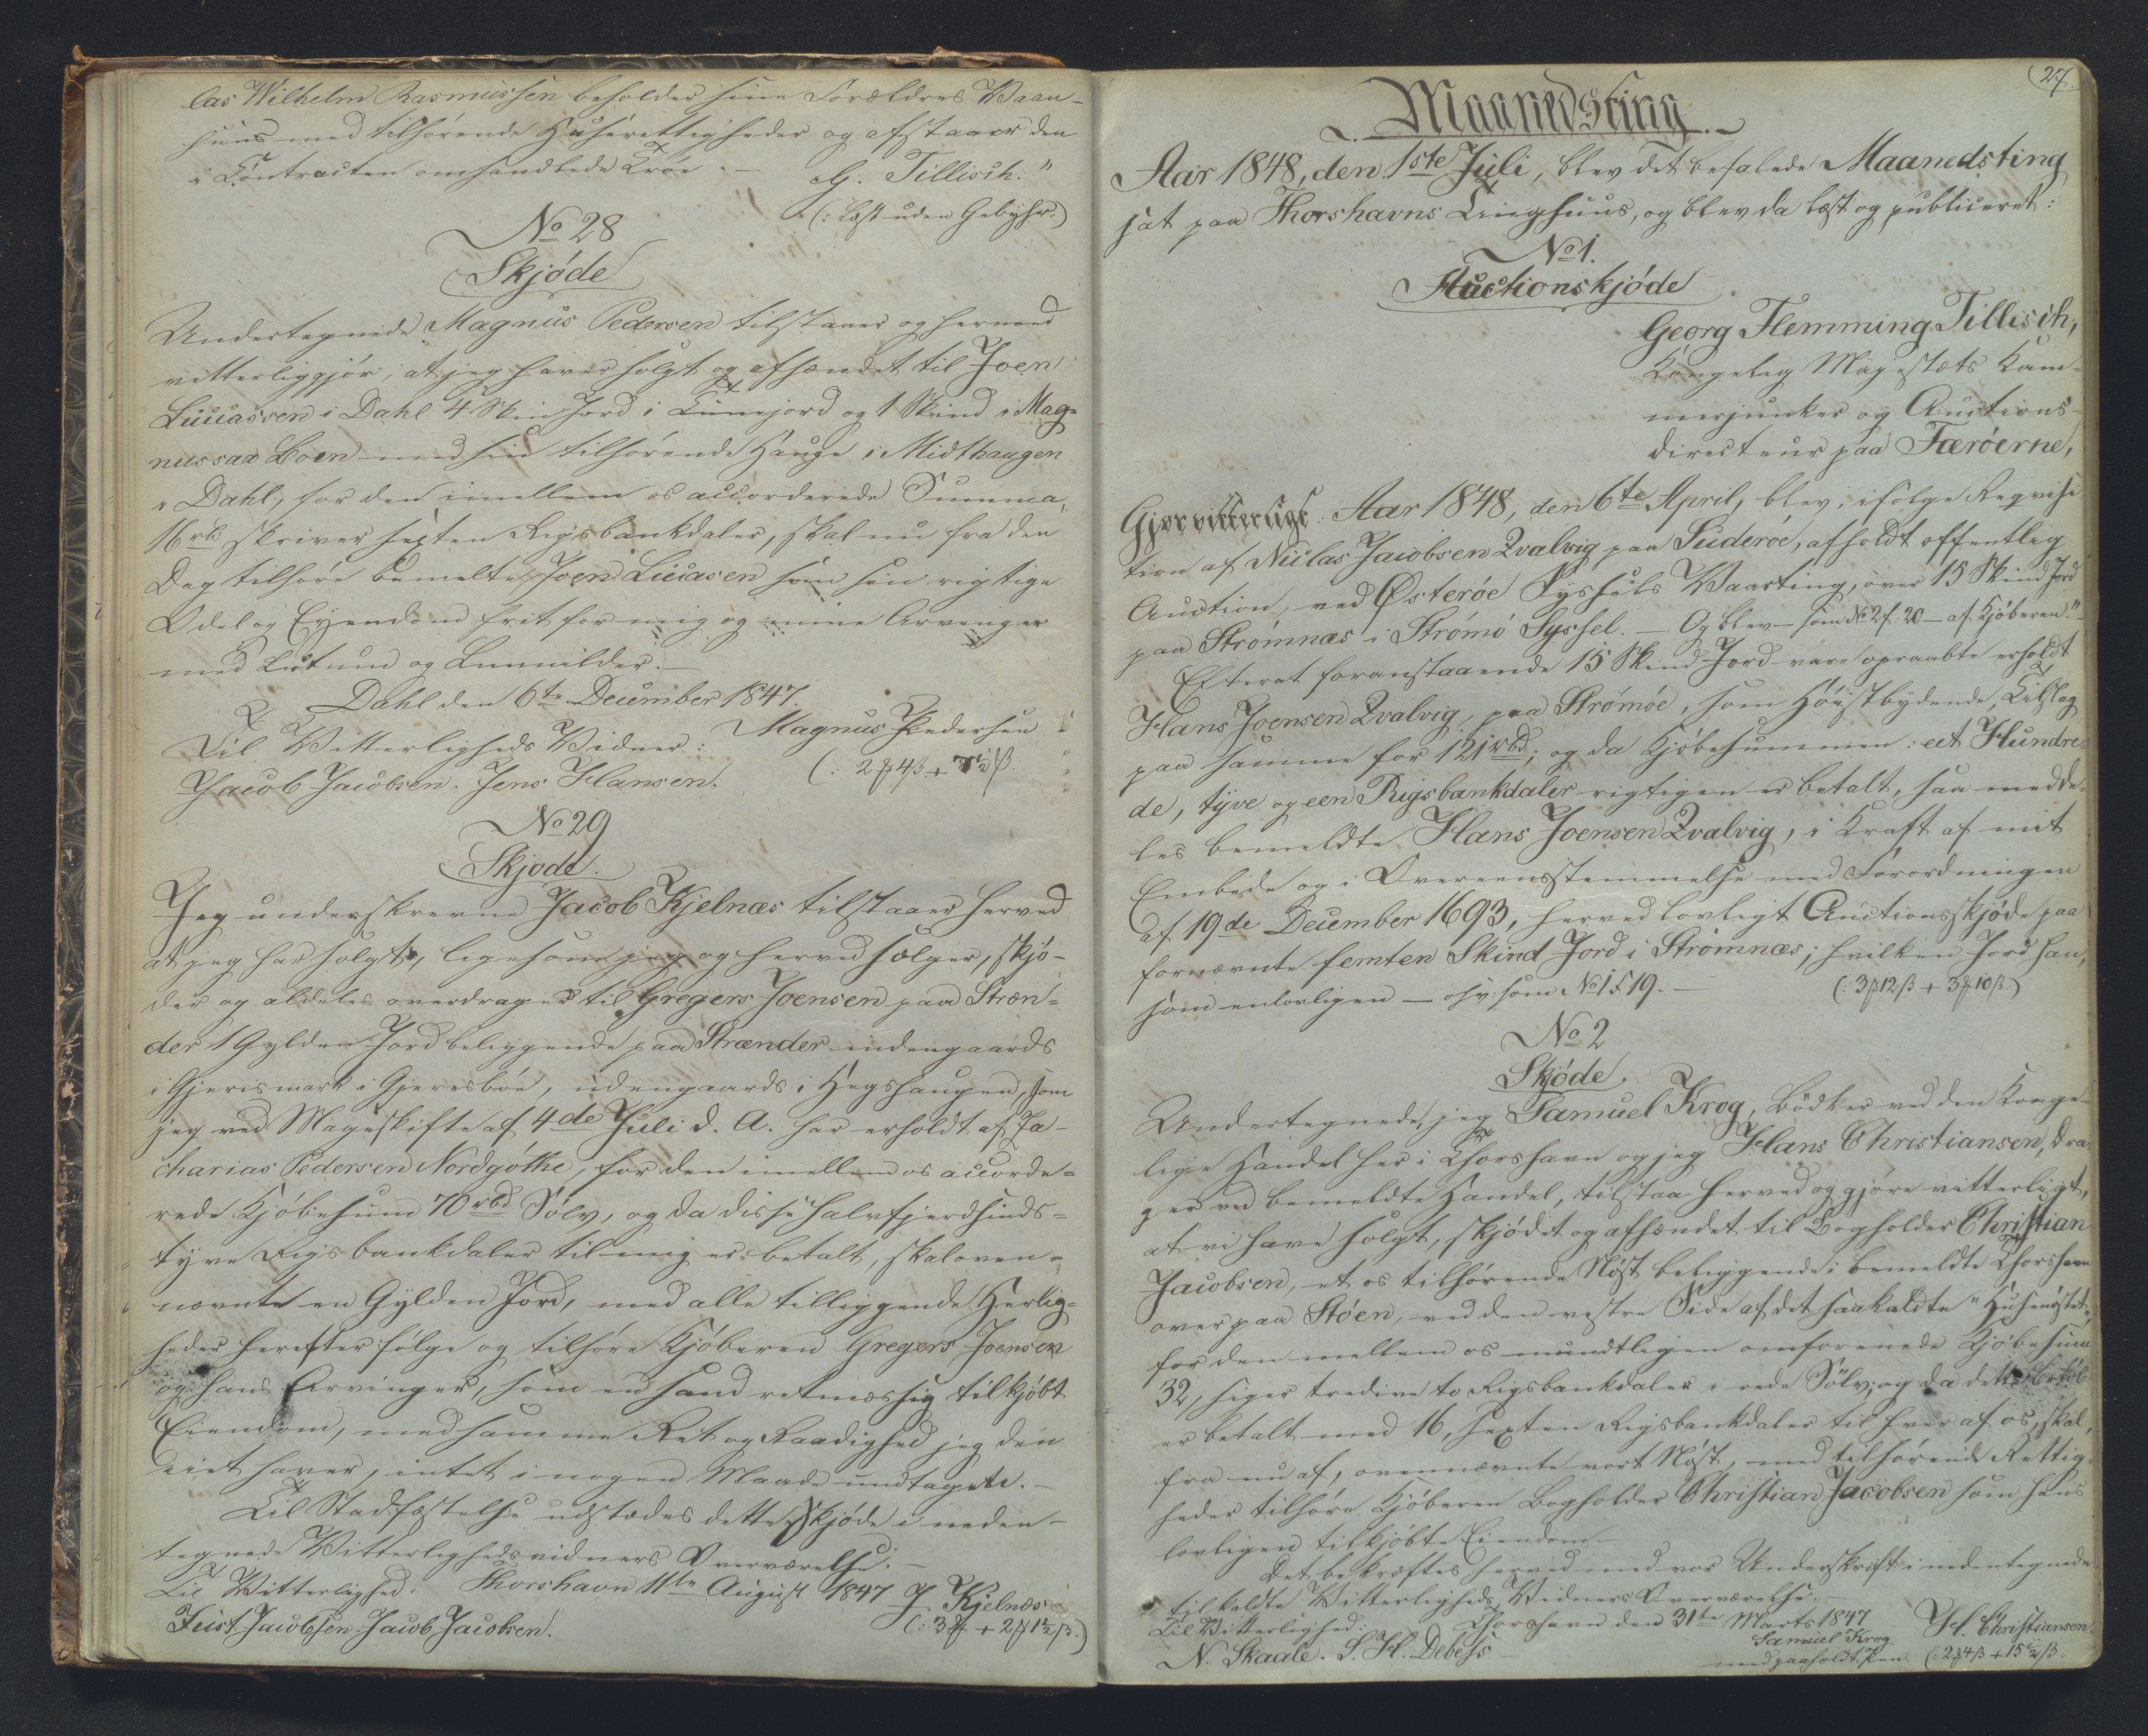 las Wilhelm Rasmussen beholder sine Forældres Vaan-
huus med tilhørende Huusrettigheder og afstaaer den
i Contracten omhandlede Trøe. —
G. Tillisch."
(: Læst uden Gebyhr.)
No 28
Skjøde
Undertegnede Magnus Pedersen tilstaaer og hermed
vitterliggjør, at jeg haver solgt og afhændet til Joen
Luccassen i Dahl 4 Skin Jord i Tunejord og 1 Skind i Mag=
nussar Boen med sin tilhørende Hauge i Midthaugen
i Dahl, for den imellem os accorderede Summa,
16 rbd skriver sexten Rigsbankdaler, skal nu fra den
Dag tilhøre bemelte Joen Lucasen som sin rigtige
Odel og Eyendom frit for mig og mine Arvinger
med Lutum og Lunnilder. —
Dahl den 6te December 1847.
Til Vitterligheds Vidner: Magnus Pedersen
Jacob Jacobsen. Jens Hansen. (: 2 ℳ 4 β + 7½ β.
No 29
Skjøde.
Jeg underskrevne Jacob Kjelnæs tilstaaer herved
at jeg har solgt, ligesom jeg og herved sælger, skjø-
der og aldeles overdrager til Gregers Joensen paa Stræn=
der 1 Gylden Jord beliggende paa Strænder indengaards
i Gjerismark i Gjeresbøe, udengaards i Hegshaugen, som
jeg ved Mageskifte af 4de Juli d. A. har erholdt af Za-
charias Pedersen Nordgøthe, for den imellem os accorde=
rede Kjøbesum 70 rbd Sølv, og da disse halvfjerdsinds=
tyve Rigsbankdaler til mig er betalt, skal oven=
nævnte en Gylden Jord, med alle tilliggende Herlig=
heder herefter følge og tilhøre Kjøberen Gregers Joensen
og hans Arvinger, som en sand retmæssig tilkjøbt
Eiendom, med samme Ret og Raadighed jeg den
eiet haver, intet i nogen Maade undtaget. —
Til Stadfæstelse udstædes dette Skjøde i neden-
tegnede Vitterlighedsvidners Overværelse. —
Til Vitterlighed. Thorshavn 11te August 1847 J. Kjelnæs
Just Jacobsen. Jacob Jacobsen. (: 3 ℳ. + 2 ℳ 1½ β.)
27.
Maanedsting.
Aar 1848, den 1ste Juli, blev det befalede Maanedsting
sat paa Thorshavns Tinghuus, og blev da læst og publiceret:
No 1.
Auctionskjøde
Georg Flemming Tillisch,
Kongelig Majestæts Kam-
merjunker og Auctions-
directeur paa Færøerne,
Gjør vitterligt: Aar 1848, den 6te April, blev, ifølge Reqvisi
tion af Niclas Jacobsen Qvalvig paa Suderøe, afholdt offentlig
Auction, ved Østerøe Syssels Vaarting, over 15 Skind Jord
paa Strømnæs i Strømø Syssel. — Og blev — som No 2 f: 20 — af Kjøberen." —
Efterat foranstaaende 15 Skind Jord vare opraabte erholdt
Hans Joensen Qvalvig, paa Strømøe, som Høistbydende, Tilslag
paa samme for 121 rbd; og da Kjøbesummen: eet Hundre=
de, tyve og een Rigsbankdaler rigtigen er betalt, saa medde-
les bemeldte Hans Joensen Qvalvig, i Kraft af mit
Embede og i Overeensstemmelse med Forordningen
af 19de December 1693, herved lovligt Auctionsskjøde paa
fornævnte femten Skind Jord i Strømnæs; hvilken Jord han,
som en lovligen — osv: som No 1 f. 19. — (: 3 ℳ 12 β + 3 ℳ 10 β.)
No 2
Skjøde.
Undertegnede, jeg Samuel Krog, Bødker ved den Konge-
lige Handel her i Thorshavn og jeg Hans Christiansen, Dra-
ger ved bemeldte Handel, tilstaa herved og gjøre vitterligt,
at vi have solgt, skjødet og afhændet til Bogholder Christian
Jacobsen, et os tilhørende Nøst beliggende i bemeldte Thorshavn
over paa Støen, ved den vestre Side af det saakaldte "Huusenøstet",
for den mellem os mundtligen omforenede Kjøbesum
32, siger tredive to Rigsbankdaler i rede Sølv; og da dette Beløb
er betalt med 16, sexten Rigsbankdaler til hver af os, skal,
fra nu af, ovennævnte vort Nøst, med tilhørende Rettig-
heder tilhøre Kjøberen Bogholder Christian Jacobsen som hans
lovligen tilkjøbte Eiendom. —
Det bekræftes herved med vor Underskrift i nedentegnede
tilkaldte Vitterligheds Vidners Overværelse. —
Til Vitterlighed: Thorshavn den 31te Marts 1847 H. Christiansen.
N. Skaale. S. H. Debess. — Samuel Krog
med paaholdt Pen. (: 2 ℳ 4 β + 15½ β.